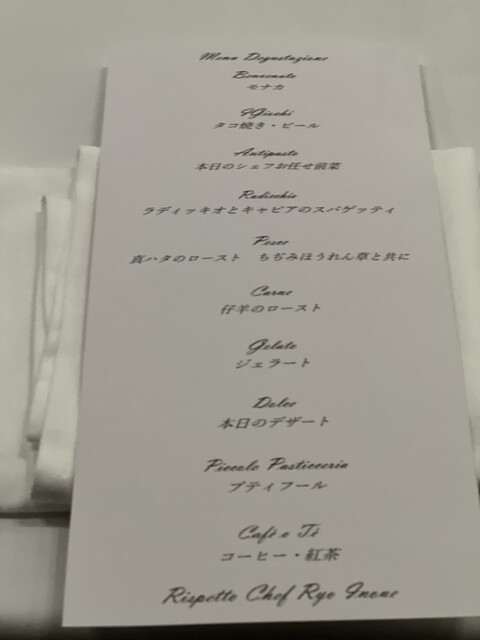 Menu Degustazione
Benvenuto
モナカ
I Giochi
タコ焼き・ビール
Antipasto
本日のシェフお任せ前菜
Radicchio
ラディッキオとキャビアのスパゲッティ
Pesce
真ハタのロースト ちぢみほうれん草と共に
Carne
仔羊のロースト
Gelato
ジェラート
Dolce
本日のデザート
Piccolo Pasticceria
プティフール
Café e Tè
コーヒー・紅茶
Rispetto Chef Ryo Inoue